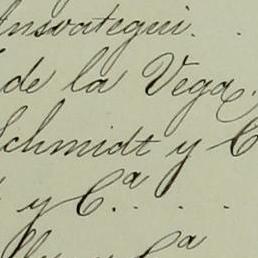 Ansoategui. .
de la Vega.
Schmidt y C
y Cª. . . .
Cª